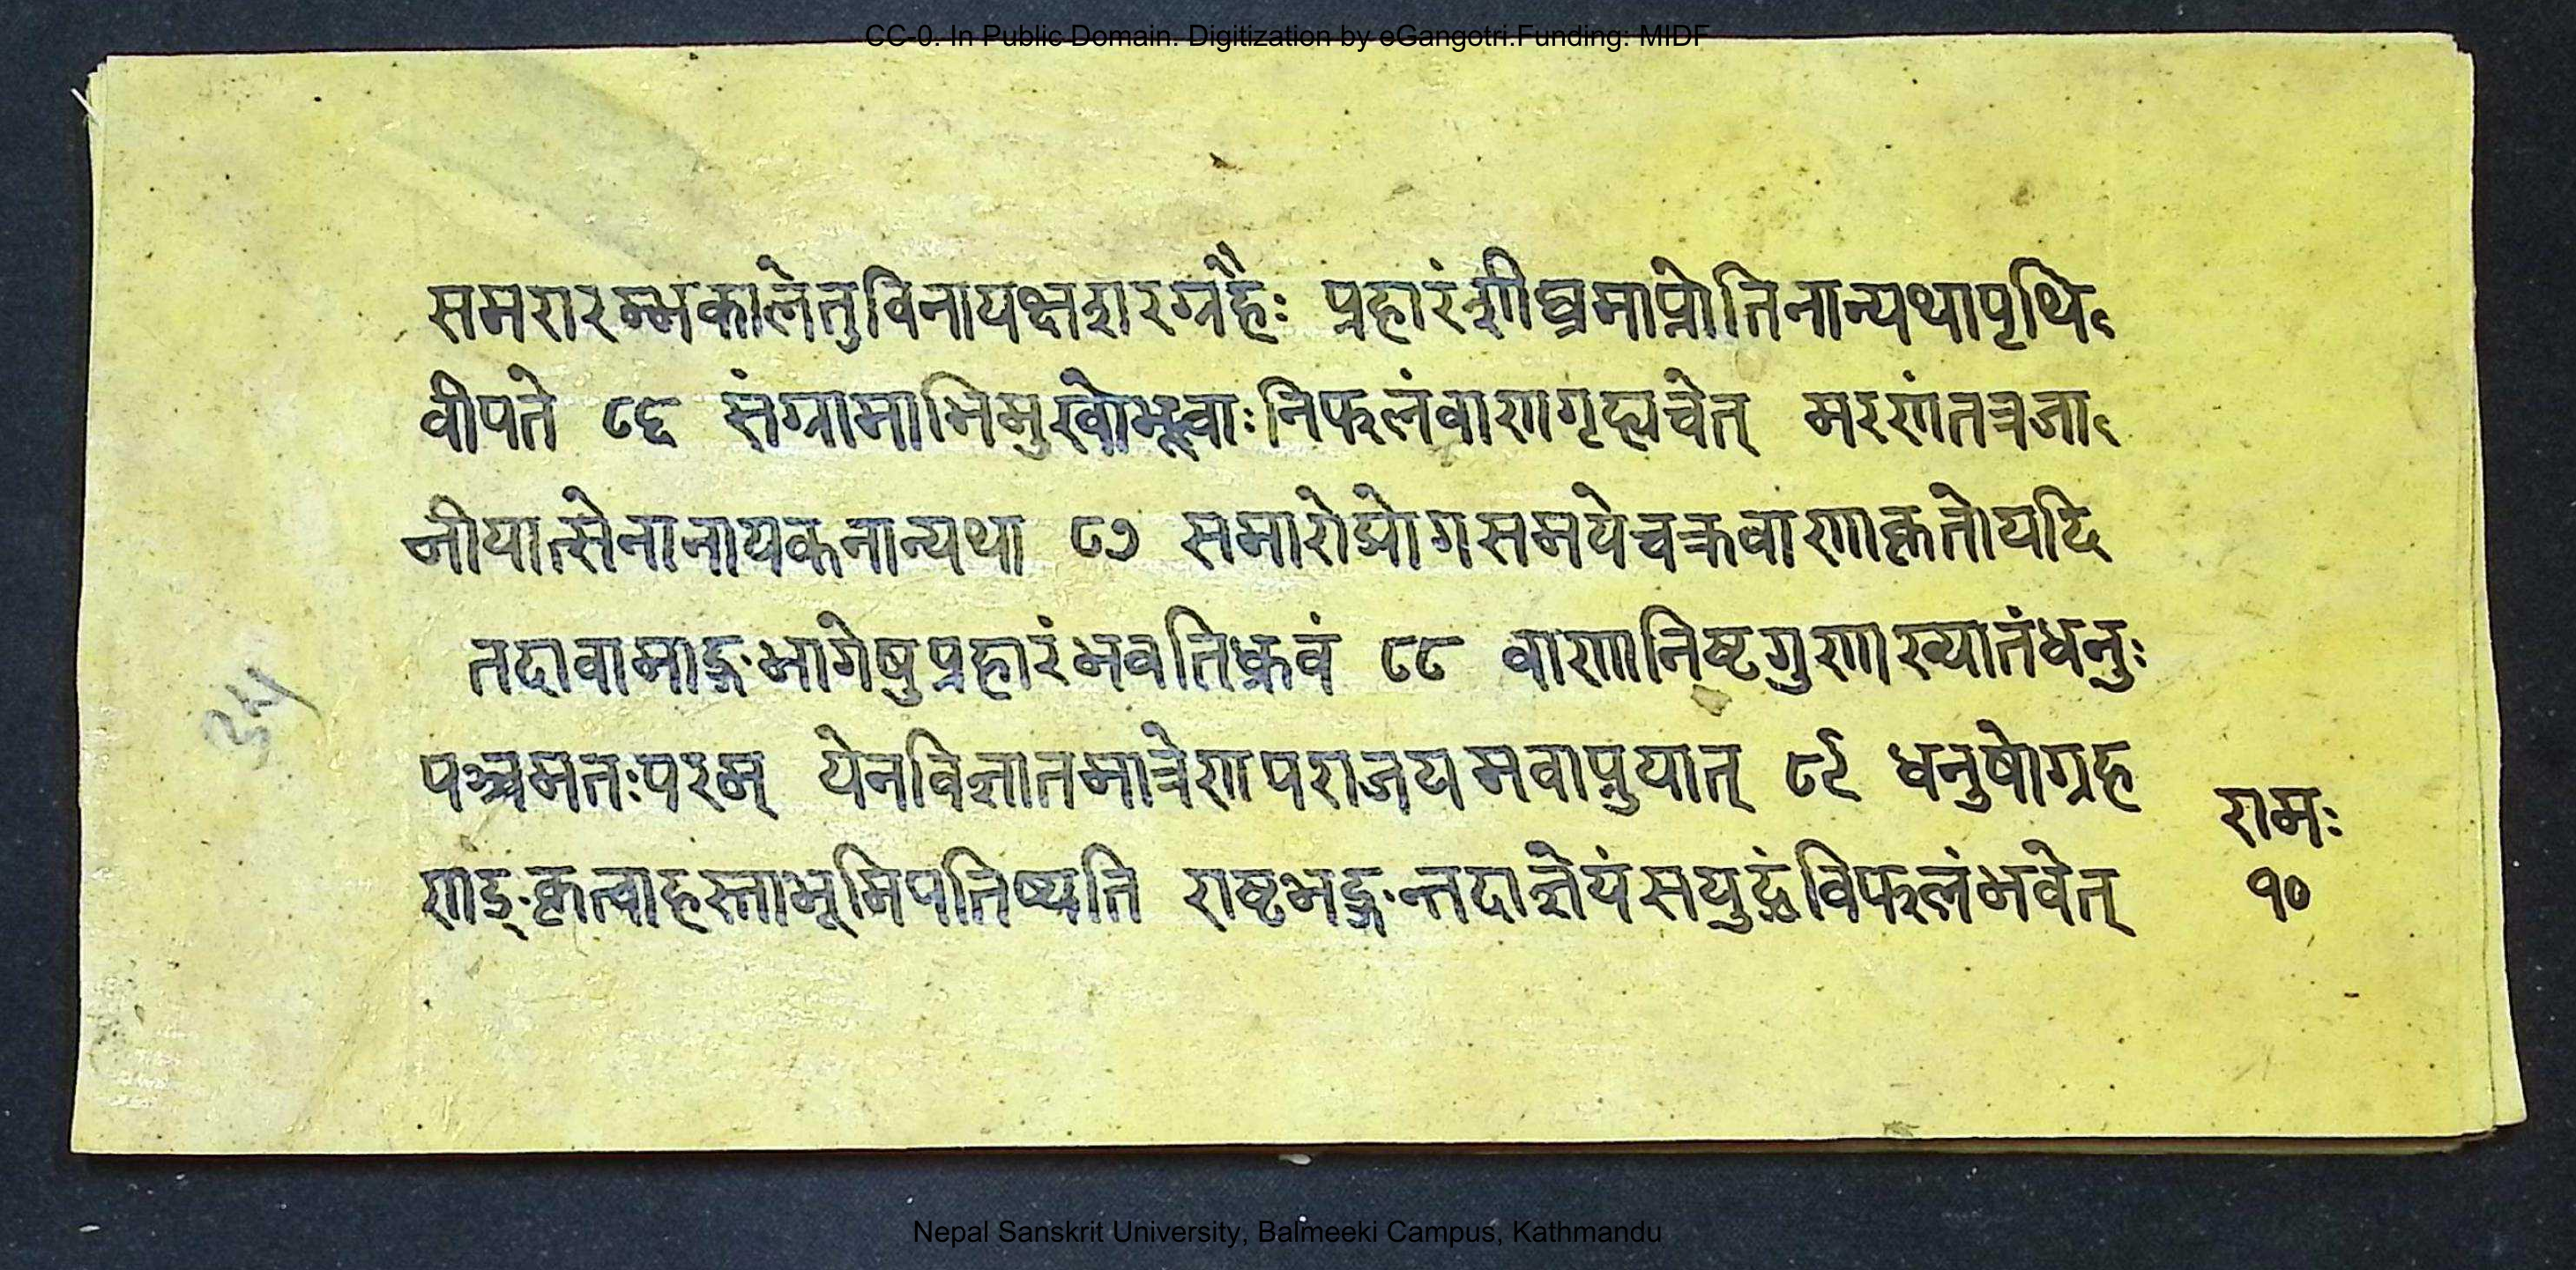 CC-0. In Public Domain. Digitization by eGangotri.Funding: MIDF
समरारम्भकालेतुविनायक्षशरग्रहैः प्रहारंशीघ्रमाप्नोतिनान्यथापृथि
वीपते ८६ संग्रामाभिमुखोभूत्वाःनिफलंवाणगृह्यचेत् मरणंतत्रजा
नीयात्सेनानायकनान्यथा ८७ समारोप्रोगसमयेचक्रवाणकृतोयदि
तदावामाङ्गभागेषुप्रहारंभवतिध्रुवं ८८ वाणनिष्टगुणाख्यातंधनुः
पञ्चमतःपरम् येनविज्ञातमात्रेणपराजयमवाप्नुयात् ८९ धनुषोग्रह
णङ्कृत्वाहस्ताभूमिपतिष्यति राष्टभङ्गन्तदाज्ञेयंसयुद्धंविफलंभवेत्
रामः
१०
३५
Nepal Sanskrit University, Balmeeki Campus, Kathmandu